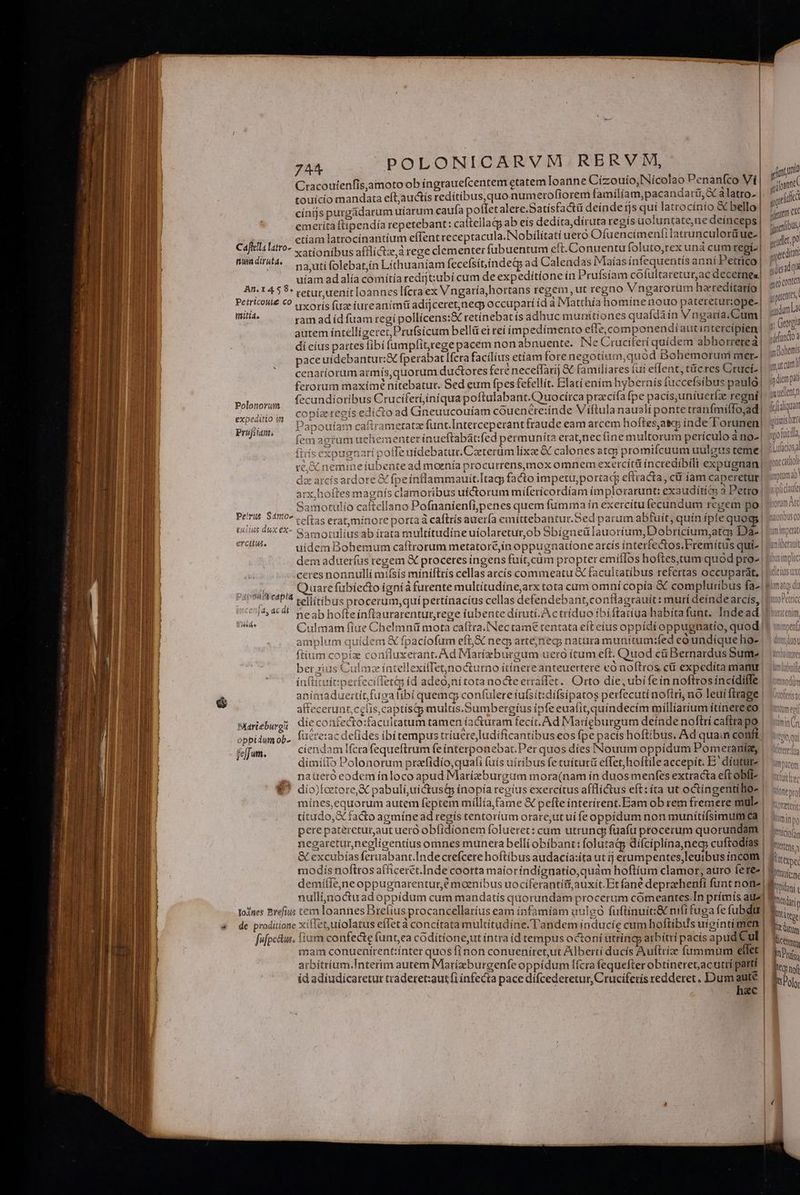 744 POLONICARVM RERVM,
Cracouienſis, amoto ob ingraueſcentem ętatem Ioanne Cizouio, Nicolao Penanſco Vi
touicio mandata eſt, auctis reditibus, quo numeroſiorem familiam, pacandarũ, & à latro-
cinijs purgãdarum uiarum cauſa poſſet alere. Satisfactũ deinde ijs qui latrocinio & bello
emerita ſtipendia repetebant: caſtellaq́; ab eis dedita, diruta regis uoluntate, ne deinceps
etiam latrocinantium eſſent receptacula. Nobilitati uerò Oſuencimenſi latrunculorũ ue-
Caſtella latro-
xationibus afflictæ, à rege clementer ſubuentum eſt. Conuentu ſoluto, rex unà cum regi-
num diruta.
na, uti ſolebat, in Lithuaniam ſeceſsit, indeq́; ad Calendas Maias inſequentis anni Petrico
uiam ad alia comitia redijt: ubi cum de expeditione in Pruſsiam cõſultaretur, ac decerne-
An. 1458.
retur, uenit Ioannes Iſcra ex Vngaria, hortans regem, ut regno Vngarorum hæreditario
Petricouiẽ co
mitia.
uxoris ſuæ iure animũ adijceret, neq́; occupari id à Matthia homine nouo pateretur: ope-
ram ad id ſuam regi pollicens: & retinebat is adhuc munitiones quaſdã in Vngaria. Cum
autem intelligeret, Pruſsicum bellũ ei rei impedimento eſſe, componendi aut intercipien
di eius partes ſibi ſumpſit, rege pacem non abnuente. Ne Cruciferi quidem abhorrere à
pace uidebantur: & ſperabat Iſcra facilius etiam fore negotium, quòd Bohemorum mer-
cenariorum armis, quorum ductores ferè neceſſarij & familiares ſui eſſent, tũc res Cruci-
ferorum maximè nitebatur. Sed eum ſpes fefellit. Elati enim hybernis ſucceſsibus paulò
fecundioribus Cruciferi, iniqua poſtulabant. Quocirca præciſa ſpe pacis, uniuerſæ regni
Polonorum
expeditio in
Pruſsiam.
copiæ regis edicto ad Gneuucouiam cõuenére: inde Viſtula nauali ponte tranſmiſſo, ad
Papouiam caſtrametatæ ſunt. Interceperant fraude eam arcem hoſtes, atq́; inde Torunen
ſem agrum uehementer inueſtabãt: ſed permunita erat, nec ſine multorum periculo à no-
ſtris expugnari poſſe uidebatur. Cæterùm lixæ & calones atq́; promiſcuum uulgus teme
rè, & nemine iubente ad mœnia procurrens, mox omnem exercitũ incredibili expugnan
dæ arcis ardore & ſpe inflammauit. Itaq́; facto impetu, portaq́; effracta, cũ iam caperetur
arx, hoſtes magnis clamoribus uictorum miſericordiam implorarunt: exauditiq́; à Petro
Samotulio caſtellano Poſnanienſi, penes quem ſumma in exercitu ſecundum regem po
Petrus Samo-
tulius dux ex-
ercitus.
teſtas erat, minore porta à caſtris auerſa emittebantur. Sed parum abfuit, quin ipſe quoq́;
Samotulius ab irata multitudine uiolaretur, ob Sbigneũ Iauorium, Dobricium, atq́; Da-
uidem Bohemum caſtrorum metatorẽ, in oppugnatione arcis interfectos. Fremitus qui-
dem aduerſus regem & proceres ingens fuit, cùm propter emiſſos hoſtes, tum quòd pro-
ceres nonnulli miſsis miniſtris cellas arcis commeatu & facultatibus refertas occuparãt.
Quare ſubiecto igni à furente multitudine, arx tota cum omni copia & compluribus ſa-
Papouia capta
incenſa, ac di
ruta.
tellitibus procerum, qui pertinacius cellas defendebant, conflagrauit: muri deinde arcis,
ne ab hoſte inſtaurarentur, rege iubente diruti. Ac triduo ibi ſtatiua habita ſunt. Inde ad
Culmam ſiue Chelmnũ mota caſtra. Nec tamẽ tentata eſt eius oppidi oppugnatio, quod
amplum quidem & ſpacioſum eſt, & neq́; arte, neq́; natura munitum: ſed eò undique ho-
ſtium copiæ confluxerant. Ad Mariæburgum uerò itum eſt. Quod cũ Bernardus Sum-
bergius Culmæ intellexiſſet, nocturno itinere anteuertere eò noſtros, cũ expedita manu
inſtituit: perfeciſſetq́; id adeò, ni tota nocte erraſſet. Orto die, ubi ſe in noſtros incidiſſe
animaduertit, fuga ſibi quemq́; conſulere iuſsit: diſsipatos perſecuti noſtri, nò leui ſtrage
affecerunt, cęſis, captisq́; multis. Sumbergius ipſe euaſit, quindecim milliarium itinere eo
Marieburgũ
oppidum ob-
ſeſſum.
die confecto: facultatum tamen iacturam fecit. Ad Mariẹburgum deinde noſtri caſtra po
ſuére: ac deſides ibi tempus triuêre, ludificantibus eos ſpe pacis hoſtibus. Ad quam conſi
ciendam Iſcra ſequeſtrum ſe interponebat. Per quos dies Nouum oppidum Pomeraniæ,
dimiſſo Polonorum præſidio, quaſi ſuis uiribus ſe tuiturũ eſſet, hoſtile accepit. E' diutur-
na uerò eodem in loco apud Mariæburgum mora (nam in duos menſes extracta eſt obſi-
dio) fœtore, & pabuli, uictusq́; inopia regius exercitus afflictus eſt: ita ut octingenti ho-
mines, equorum autem ſeptem millia, fame & peſte interirent. Eam ob rem fremere mul-
titudo, & facto agmine ad regis tentorium orare, ut ui ſe oppidum non munitiſsimum ca
pere pateretur, aut uerò obſidionem ſolueret: cùm utrunq́; ſuaſu procerum quorundam
negaretur, negligentius omnes munera belli obibant: ſolutaq́; diſciplina, neq́; cuſtodias
& excubias ſeruabant. Inde creſcere hoſtibus audacia: ita ut ij erumpentes, leuibus incom
modis noſtros afficerēt. Inde coorta maior indignatio, quàm hoſtium clamor, auro ſe re-
demiſſe, ne oppugnarentur, è mœnibus uociferantiũ, auxit. Et ſanè depræhenſi ſunt non-
nulli, noctu ad oppidum cum mandatis quorundam procerum cõmeantes. In primis au-
Ioãnes Breſius
de proditione
ſuſpectus.
tem Ioannes Breſius procancellarius eam infamiam uulgò ſuſtinuit: & niſi fuga ſe ſubdu
xiſſet, uiolatus eſſet à concitata multitudine. Tandem induciæ cum hoſtibus uiginti men
ſium confectę ſunt, ea cõditione, ut intra id tempus octoni utrinq́; arbitri pacis apud Cul
mam conuenirent: inter quos ſi non conueniret, ut Alberti ducis Auſtriæ ſummum eſſet
arbitrium. Interim autem Mariæburgenſe oppidum Iſcra ſequeſter obtineret, ac utri parti
id adiudicaretur traderet: aut ſi infecta pace diſcederetur, Cruciferis redderet. Dum autē
hæc